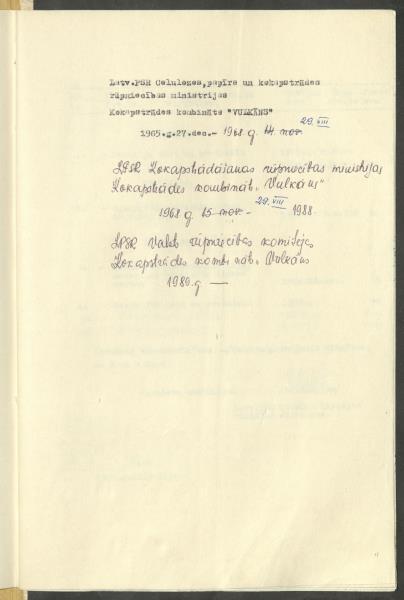 Latv.PSR Celulozes,papīra un kokapstrādes
rūpniecības ministrijas
Kokapstrādes kombināts "VULKĀNS"
1965.g.27.dec.- 1968 g. 14. nov. 29.VIII
LPSR Kokapstrādāšanas rūpniecības ministrijas
Kokapstrādes kombināts "Vulkāns"
1968 g. 15. nov. - 29.VIII 1988
LPSR Valsts rūpniecības komitejas
Kokapstrādes kombināts Vulkāns
1989.g —